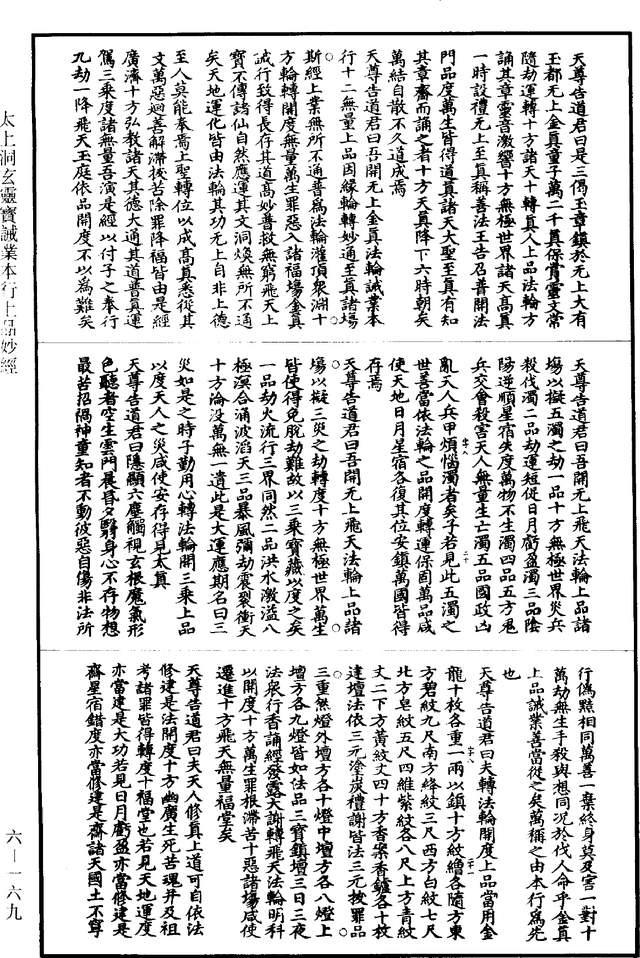 天尊告道君曰是三偈玉章鎮於无上大有
玉都无上金真童子萬二千真保賞靈文常
隨劫運轉十方諸天十轉真人上品法輪方
誦其章靈音激響十方無極世界諸天高真
一時設禮无上至真稱善法王告召普開法
門品度萬生皆得道真諸天大聖至真有知
其章齋而誦之者十方天真降下六時朝矣
萬結自散不久道成焉
天尊告道君曰吾開无上金真法輪誡業本
行十二無量上品因緣輪轉妙通至真諸場
斯經上業無所不通普為法輪灌頂眾淵十
方輪轉開度無量萬生罪惡入諸福場金真
誡行致得長存其道高妙普救無窮飛天上
寶不傳諸仙自然應運其文洞煥無所不通
矣天地運化皆由法輪其功无上自非上德
至人莫能奉焉上聖轉位以成高真悉從其
文萬惡迴善解滯拔苦除罪降福皆由是經
廣濟十方弘教諸天其德大通其道普真運
駕三乘度諸無量吾演是經以付子之奉行
九劫一降飛天玉庭依品開度不以為難矣
天尊告道君曰吾開无上飛天法輪上品諸
場以擬五濁之劫一品十方無極世界災兵
殺伐濁二品劫運短促日月虧盈濁三品陰
陽逆順星宿失度萬物不生濁四品五方鬼
兵交會殺害天人無量生亡濁五品國政凶
亂天人兵甲煩惱濁者矣子若見此五濁之
世善當依法輪之品開度轉運保固萬品咸
使天地日月星宿各復其位安鎮萬國皆得
存焉
天尊告道君曰吾開无上飛天法輪上品諸
場以擬三災之劫轉度十方無極世界萬生
皆使得免脫劫難故以三乘寶藏以度之矣
一品劫火流行三界同然二品洪水激溢八
極溟合涌波滔天三品暴風彌劫震裂衝天
十方淪没萬無一遺此是大運應期名曰三
災如是之時子勤用心轉法輪開三乘上品
以度天人之災咸使安存得見太真
天尊告道君曰隱顯六塵觸視玄根魔氣形
色聽者空生雲門晨昏夕翳身心不存物想
最苦招禍神童知者不動彼惡自傷非法所
行偽黠相同萬善一棄終身莫及害一對十
萬劫無生手殺與想同况於伐人命乎金真
上品誡業善當從之矣萬稱之由本行為先
也
天尊告道君曰夫轉法輪開度上品當用金
龍十枚各重一兩以鎮十方紋繒各隨方東
方碧紋九尺南方絳紋三尺西方白紋七尺
北方皂紋五尺四維紫紋各八尺上方青紋
丈二下方黃紋丈四十方香案香鑪各十枚
達壇法依三元塗炭禮謝皆法三元拔罪品
三重然燈外壇方各十燈中壇方各八燈上
壇方各九燈皆如法品三寶鎮壇三日三夜
法眾行香誦經發露大謝轉飛天法輪明科
以開度十方萬生罪根滯苦十惡諸場咸使
遷進十方飛天無量福堂矣
天尊告道君曰夫天人修真上道可自依法
修建是法開度十方幽廣生死苦魂并及祖
考諸罪皆得轉度十福堂也若見天地運度
亦當建是大功若見日月虧盈亦當修建是
齋星宿錯度亦當修建是齋諸天國土不寧
太上洞玄靈寶誡業本行上品妙經
六—一六九